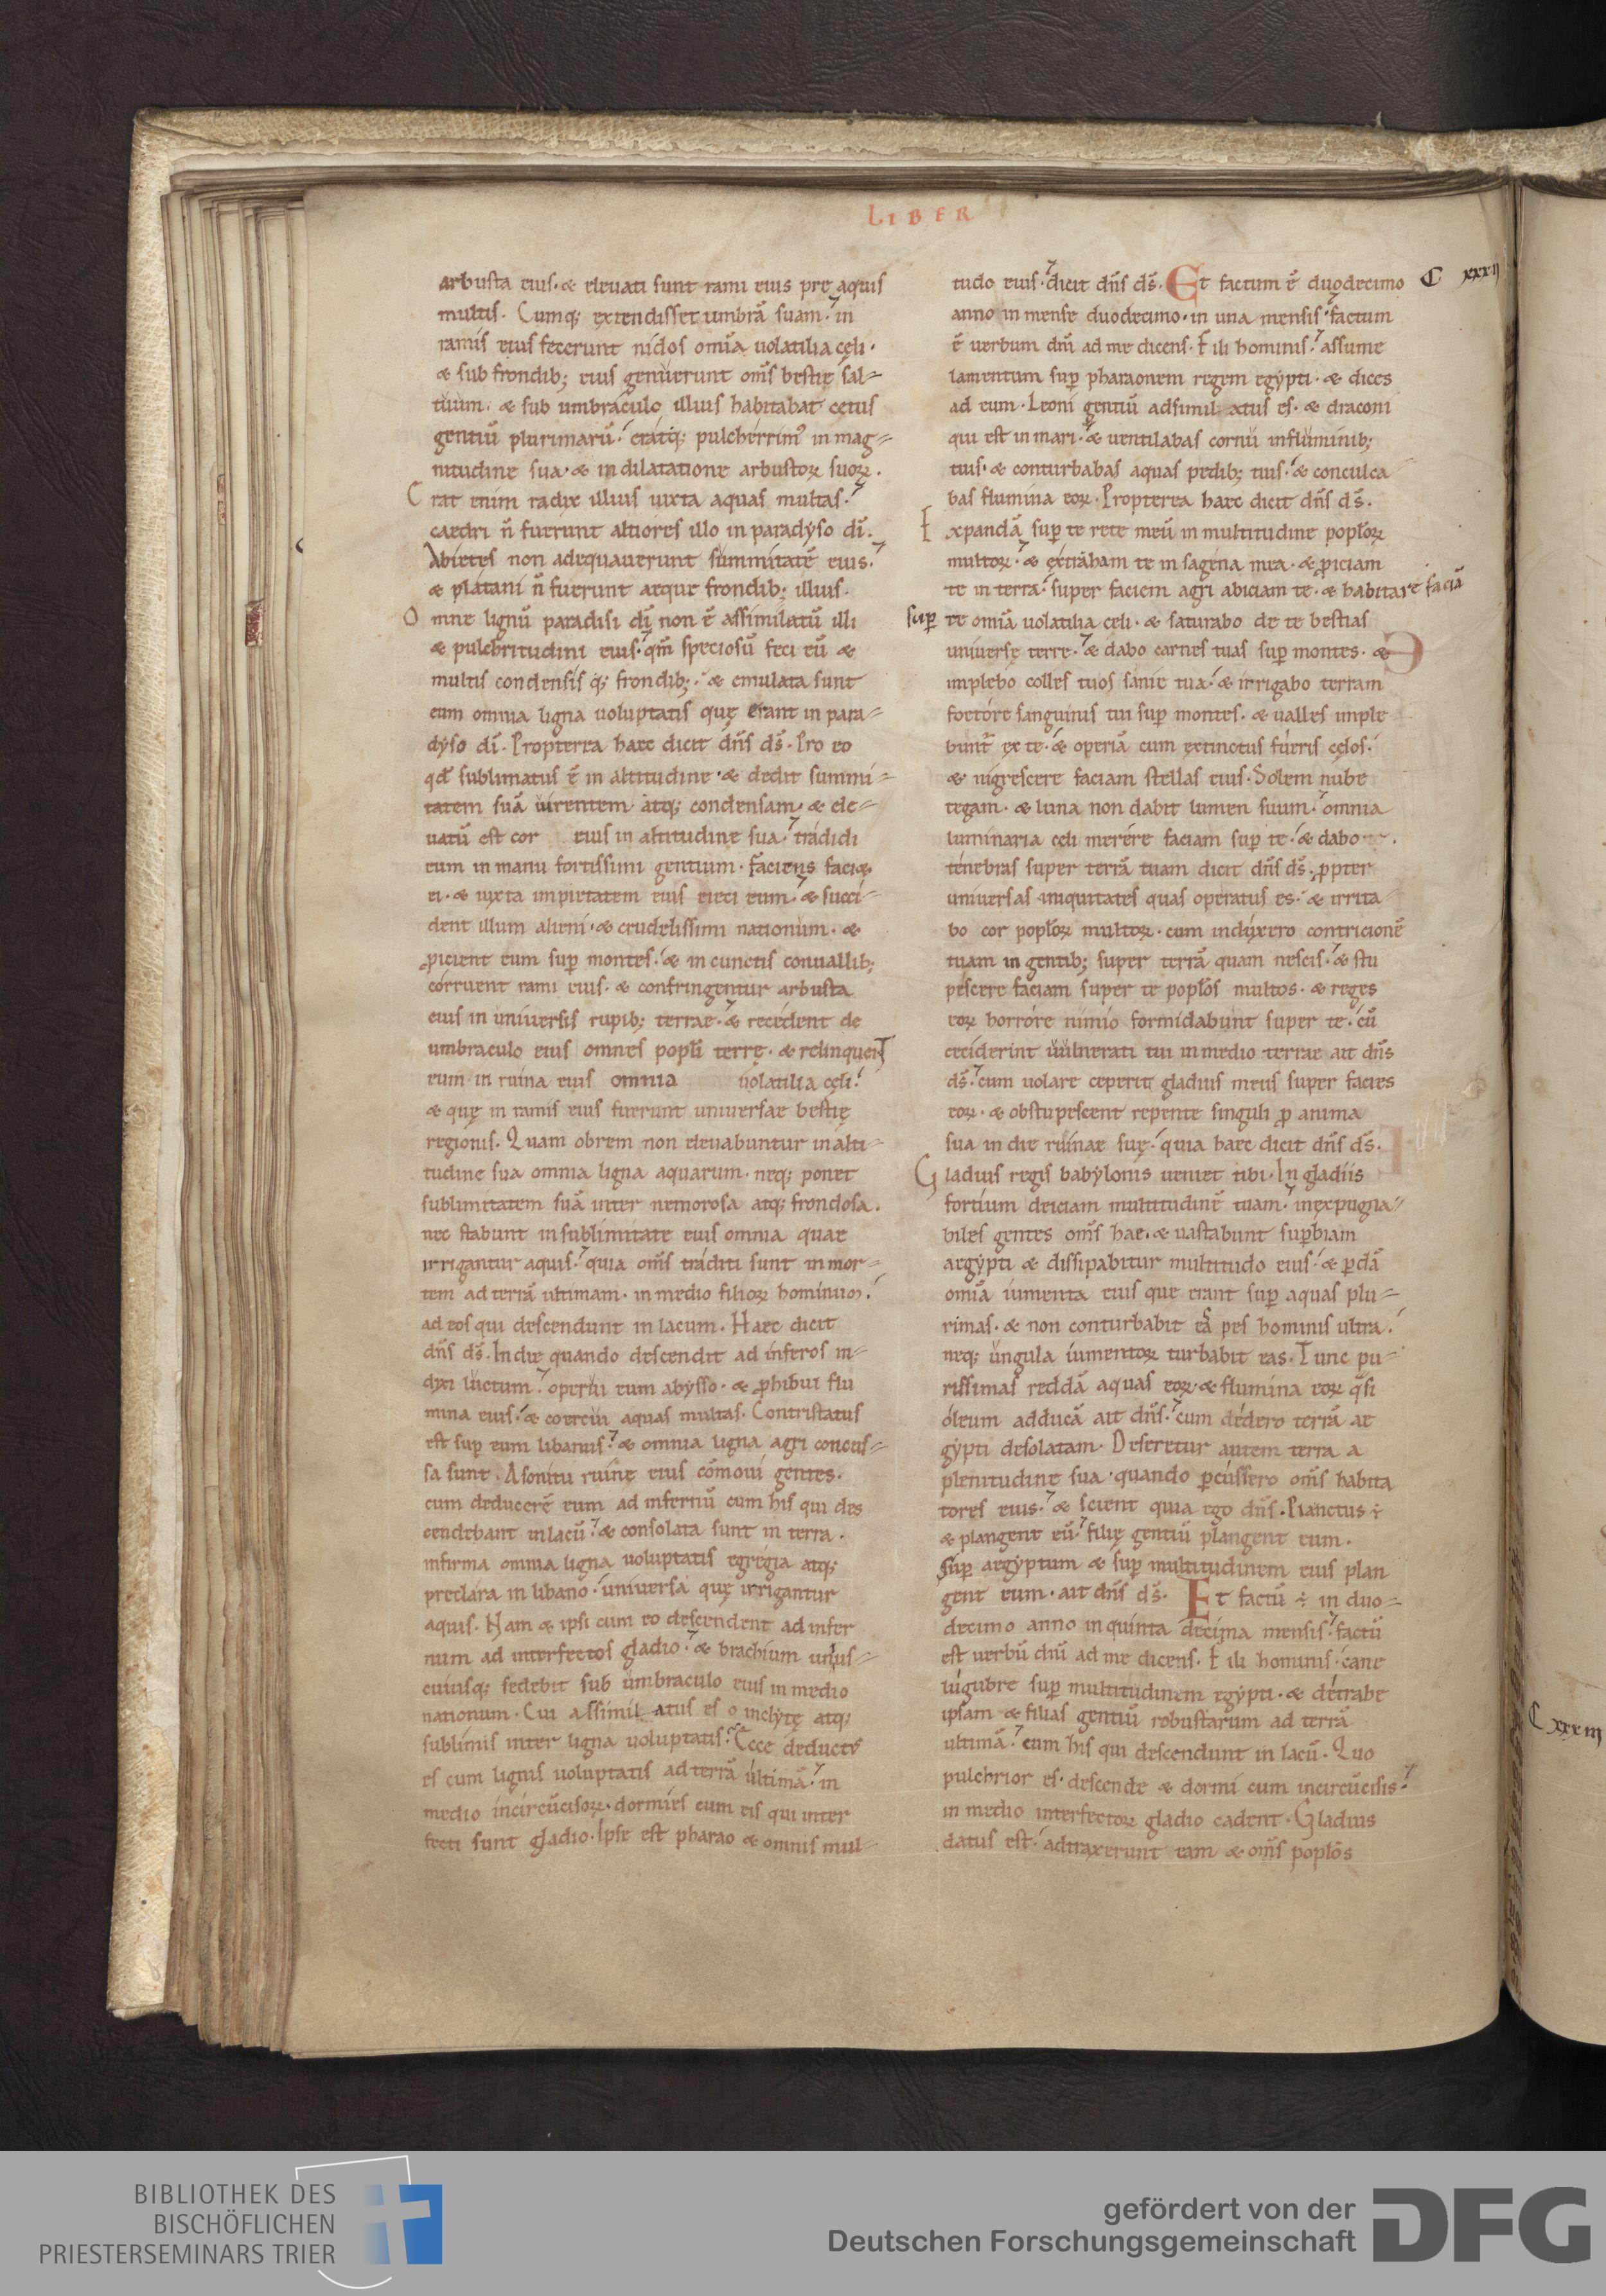 LIBER
arbusta eius· & eleuati sunt rami eius prę aquis
multis. Cumq; extendisset umbrā suam· in
ramis eius fecerunt nidos om̄ia uolatilia cęli·
& sub frondib; eius genuerunt om̄s bestię sal-
tuum. & sub umbraculo illius habitabat cętus
gentiū plurimarū. eratq; pulcherrim' in mag-
nitudine sua· & in dilatatione arbustoꝝ suoꝝ.
E rat enim radix illius iuxta aquas multas.
caedri n̄ fuerunt altiores illo in paradyso dī.
Abietes non adequauerunt summitatē eius.
& platani n̄ fuerunt aeque frondib; illius.
O mne lignū paradisi dī non ē assimilatū illi
& pulchritudini eius. qm̄ speciosū feci eū &
multis condensis q; frondib;. & emulata sunt
eum omnia ligna uoluptatis quę erant in para-
dyso dī. Propterea haec dicit dn̄s ds̄. Pro eo
qd̄ sublimatus ē in altitudine· & dedit summi-
tatem suā uirentem atq; condensam· & ele-
uatū est cor eius in altitudine sua. tradidi
eum in manu fortissimi gentium. faciens faci&
ei· & iuxta impietatem eius eieci eum. & succi-
dent illum alieni· & crudelissimi nationum. &
ꝓicient eum suꝑ montes. & in cunctis conuallib;
corruent rami eius. & confringentur arbusta
eius in uniuersis rupib; terrae. & recedent de
umbraculo eius omnes popl̄i terrę. & relinquent
eum in ruina eius omnia uolatilia cęli.
& quę in ramis eius fuerunt uniuersae bestię
regionis. Quam obrem non eleuabuntur in alti-
tudine sua omnia ligna aquarum. neq; ponet
sublimitatem suā inter nemorosa atq; frondosa.
nec stabunt in sublimitate eius omnia quae
irrigantur aquis. quia om̄s traditi sunt in mor-
tem ad terrā ultimam. in medio filioꝝ hominum.
ad eos qui descendunt in lacum. Haec dicit
dn̄s ds̄. In die quando descendit ad inferos in-
duxi luctum. operui eum abysso. & ꝓhibui flu
mina eius. & coercui aquas multas. Contristatus
est suꝑ eum libanus. & omnia ligna agri concus-
sa sunt. A sonitu ruinę eius cōmoui gentes.
cum deducerē eum ad infernū cum his qui des
cendebant in lacū. & consolata sunt in terra.
infirma omnia ligna uoluptatis egregia atq;
preclara in libano. uniuersa quę irrigantur
aquis. Nam & ipsi cum eo descendent ad infer
num ad interfectos gladio. & brachium unus-
cuiusq; sedebit sub umbraculo eius in medio
nationum. Cui assimilatus es o inclytę atq;
sublimis inter ligna uoluptatis. Ecce deduct'
es cum lignis uoluptatis ad terrā ultimā. in
medio incircūcisoꝝ. dormies cum eis qui inter
fecti sunt gladio. Ipse est pharao & omnis mul-
tudo eius. dicit dn̄s ds̄. Et factum ē duodecimo
C xxxii
anno in mense duodecimo. in una mensis. factum
ē uerbum dn̄i ad me dicens. Fili hominis. assume
lamentum suꝑ pharaonem regem egypti. & dices
ad eum. Leoni gentiū adsimilatus es. & draconi
qui est in mari. & uentilabas cornu in fluminib;
tuis. & conturbabas aquas pedib; tuis. & conculca
bas flumina eoꝝ. Propterea haec dicit dn̄s ds̄.
E xpandā suꝑ te rete meū in multitudine popl̄oꝝ
multoꝝ. & extraham te in sagena mea. & ꝓiciam
te in terrā. super faciem agri abiciam te. & habitare faciā
suꝑ te om̄ia uolatilia cęli. & saturabo de te bestias
uniuersę terrę. & dabo carnes tuas suꝑ montes. &
implebo colles tuos sanie tua. & irrigabo terram
foetore sanguinis tui suꝑ montes. & ualles imple
bunt̄ ex te. & operiā cum extinctus fueris cęlos.
& nigrescere faciam stellas eius. Solem nube
tegam. & luna non dabit lumen suum. omnia
luminaria cęli merere faciam suꝑ te. & dabo
tenebras super terrā tuam dicit dn̄s ds̄. ꝓpter
uniuersas iniquitates quas operatus es. & irrita-
bo cor popl̄oꝝ multoꝝ. cum induxero contricionē
tuam in gentib; super terrā quam nescis. & stu
pescere faciam super te popl̄os multos. & reges
eoꝝ horrore nimio formidabunt super te. cū
ceciderint uulnerati tui in medio terrae ait dn̄s
ds̄. cum uolare ceperit gladius meus super facies
eoꝝ. & obstupescent repente singuli ꝓ anima
sua in die ruinae suę. quia haec dicit dn̄s ds̄.
G ladius regis babylonis ueniet tibi. In gladiis
fortium deiciam multitudinē tuam. inexpugna-
biles gentes om̄s hae. & uastabunt suꝑbiam
aegypti & dissipabitur multitudo eius. & ꝑdā
om̄ia iumenta eius que erant suꝑ aquas plu-
rimas. & non conturbabit eā pes hominis ultra.
neq; ungula iumentoꝝ turbabit eas. Tunc pu-
rissimas reddā aquas eoꝝ. & flumina eoꝝ q̄si
oleum adducā ait dn̄s. cum dedero terrā ae
gypti desolatam. Deseretur autem terra a
plenitudine sua. quando ꝑcussero om̄s habita
tores eius. & scient quia ego dn̄s. Planctus ÷
& plangent eū. filię gentiū plangent eum.
suꝑ aegyptum & suꝑ multitudinem eius plan
gent eum. ait dn̄s ds̄. Et factū ÷ in duo-
decimo anno in quinta decima mensis. factū
est uerbū dn̄i ad me dicens. Fili hominis. cane
lugubre suꝑ multitudinem egypti. & detrahe
ipsam & filias gentiū robustarum ad terrā
ultimā. cum his qui descendunt in lacū. Quo
pulchrior es. descende & dormi cum incircūcisis.
in medio interfectoꝝ gladio cadent. Gladius
datus est. adtraxerunt eam & om̄s popl̄os
C xxxiii
BIBLIOTHEK DES
BISCHÖFLICHEN
PRIESTERSEMINARS TRIER
gefördert von der
Deutschen Forschungsgemeinschaft
DFG